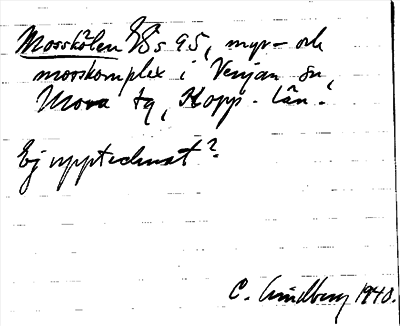 Mosskölen 8/8 s 95, myr- och
mosskomplex i Venjan sn,
Mora tg, Kopp. län.
Ej upptecknat?
C. Lindberg 1940.